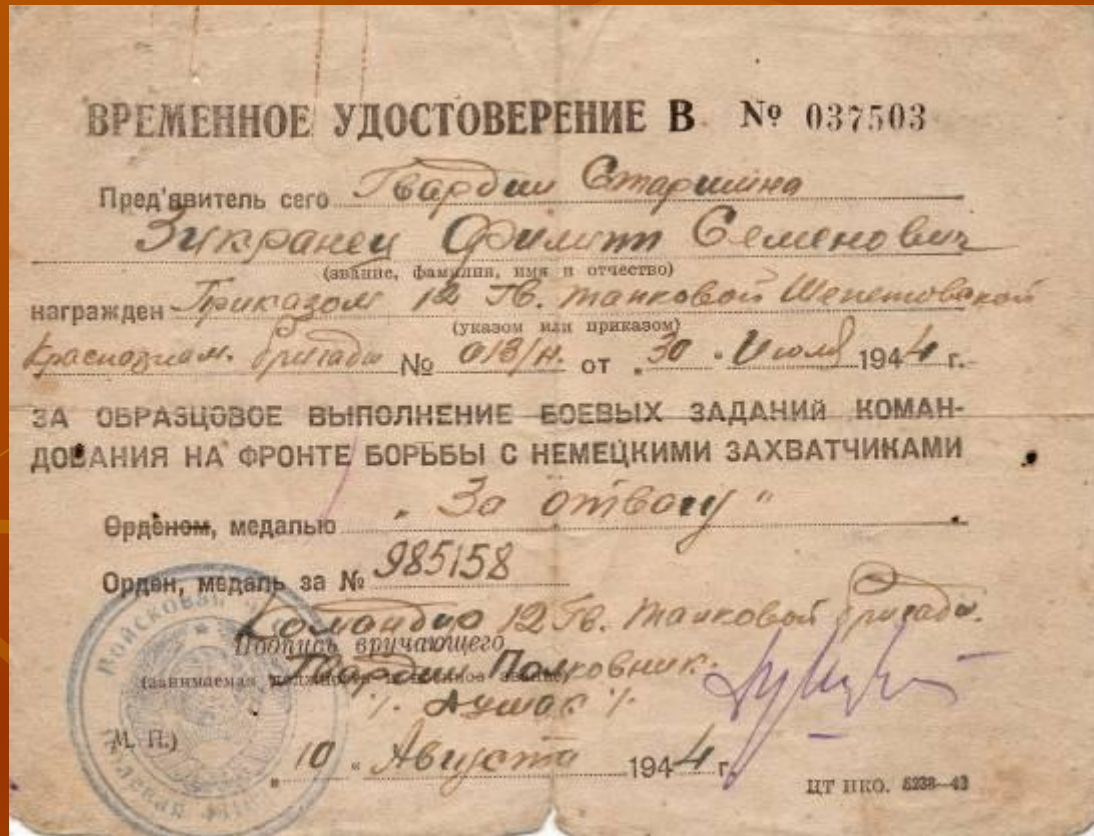 ВРЕМЕННОЕ УДОСТОВЕРЕНИЕ В № 037503
Пред'явитель сего Гвардии Старшина
Зикранец Филипп Семенович
(звание, фамилия, имя и отчество)
награжден Приказом 12 Гв. танковой Шепетовской
(указом или приказом)
Краснознам. бригады № 013/н. от "30" Июля 1944 г.
ЗА ОБРАЗЦОВОЕ ВЫПОЛНЕНИЕ БОЕВЫХ ЗАДАНИЙ КОМАН-
ДОВАНИЯ НА ФРОНТЕ БОРЬБЫ С НЕМЕЦКИМИ ЗАХВАТЧИКАМИ
Орденом, медалью "За отвагу"
Орден, медаль за № 985158
Командир 12 Гв. танковой бригады.
Подпись вручающего
Гвардии Полковник.
(занимаемая
/. Душак /.
М. П.)
"10" Августа 1944 г.
ЦТ НКО. 5238—43
Войсковая